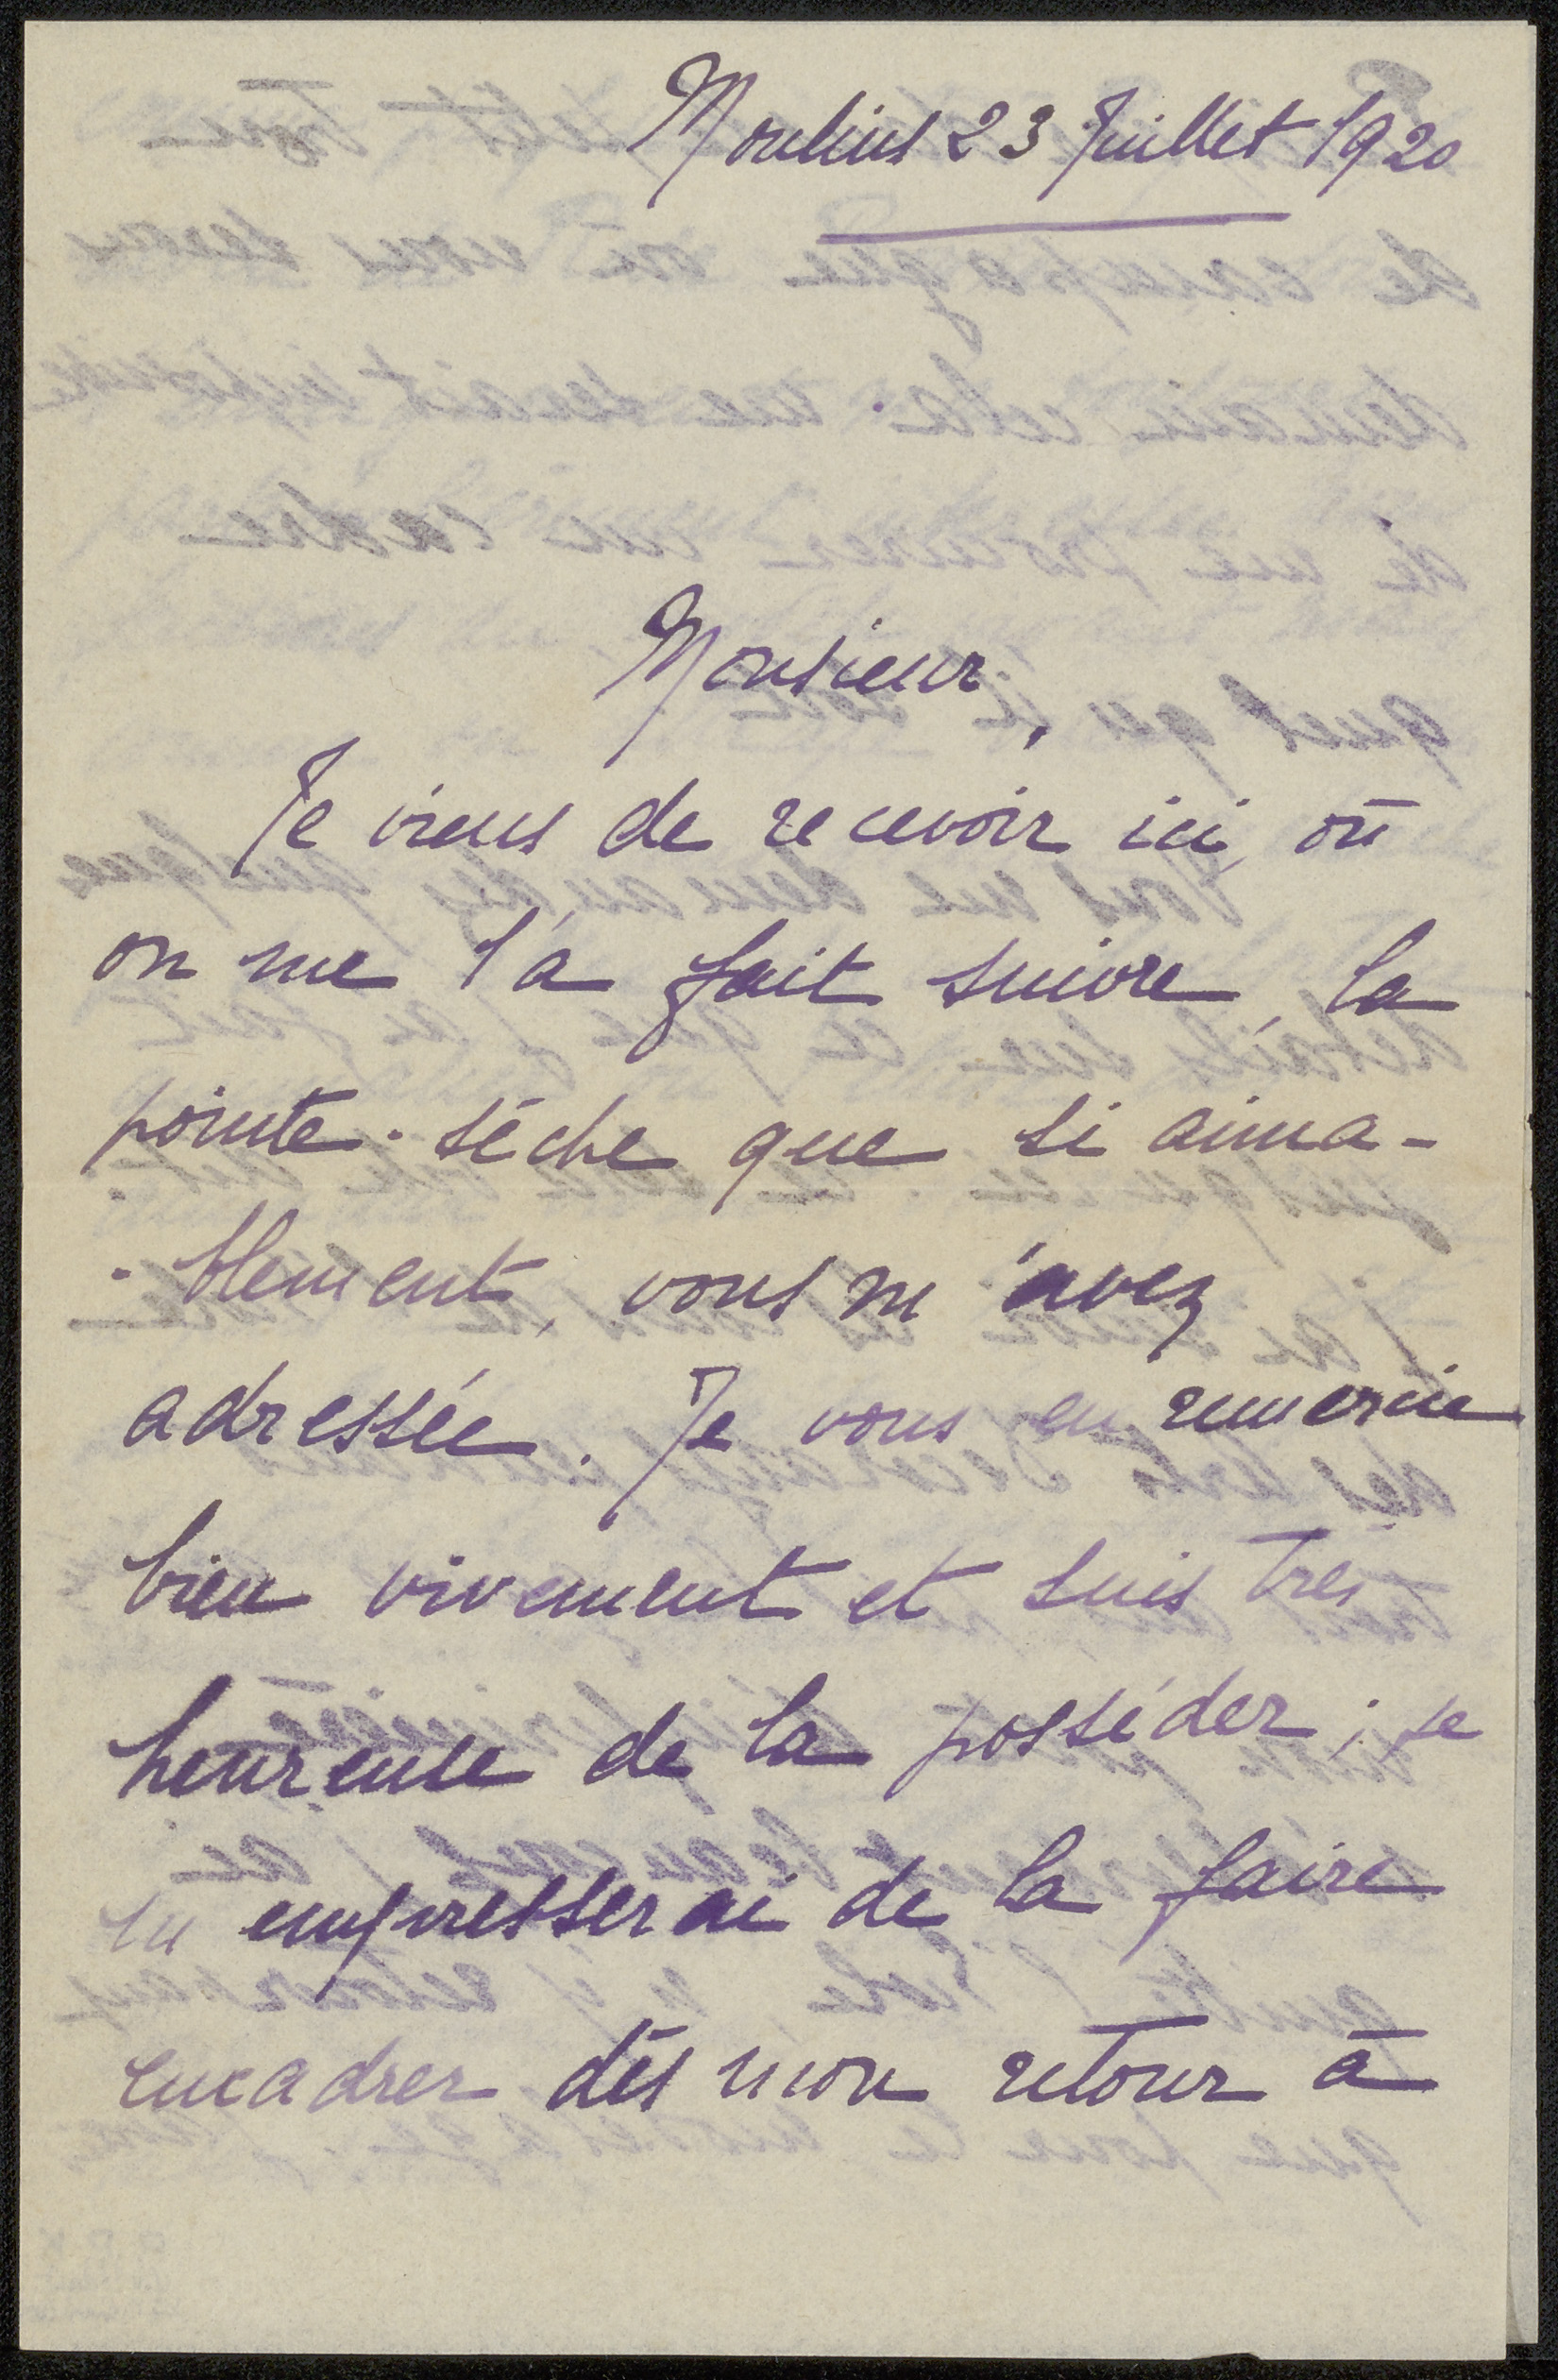 Moulins 23 Juillet 1920
Monsieur,
Je viens de recevoir ici, où
on me l'a fait suivre, la
pointe-sèche que si aima-
-blement, vous m'avez
adressée. Je vous en remercie
bien vivement et suis très
heureuse de la posséder ; je
m'empresserai de la faire
encadrer dès mon retour à